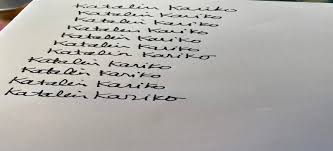 Katalin Kariko
Katalin Kariko
Katalin Kariko
Katalin Kariko
Katalin Kariko
Katalin Kariko
Katalin Kariko
Katalin Kariko
Katalin Kariko
Katalin Kariko
Katalin Kariko